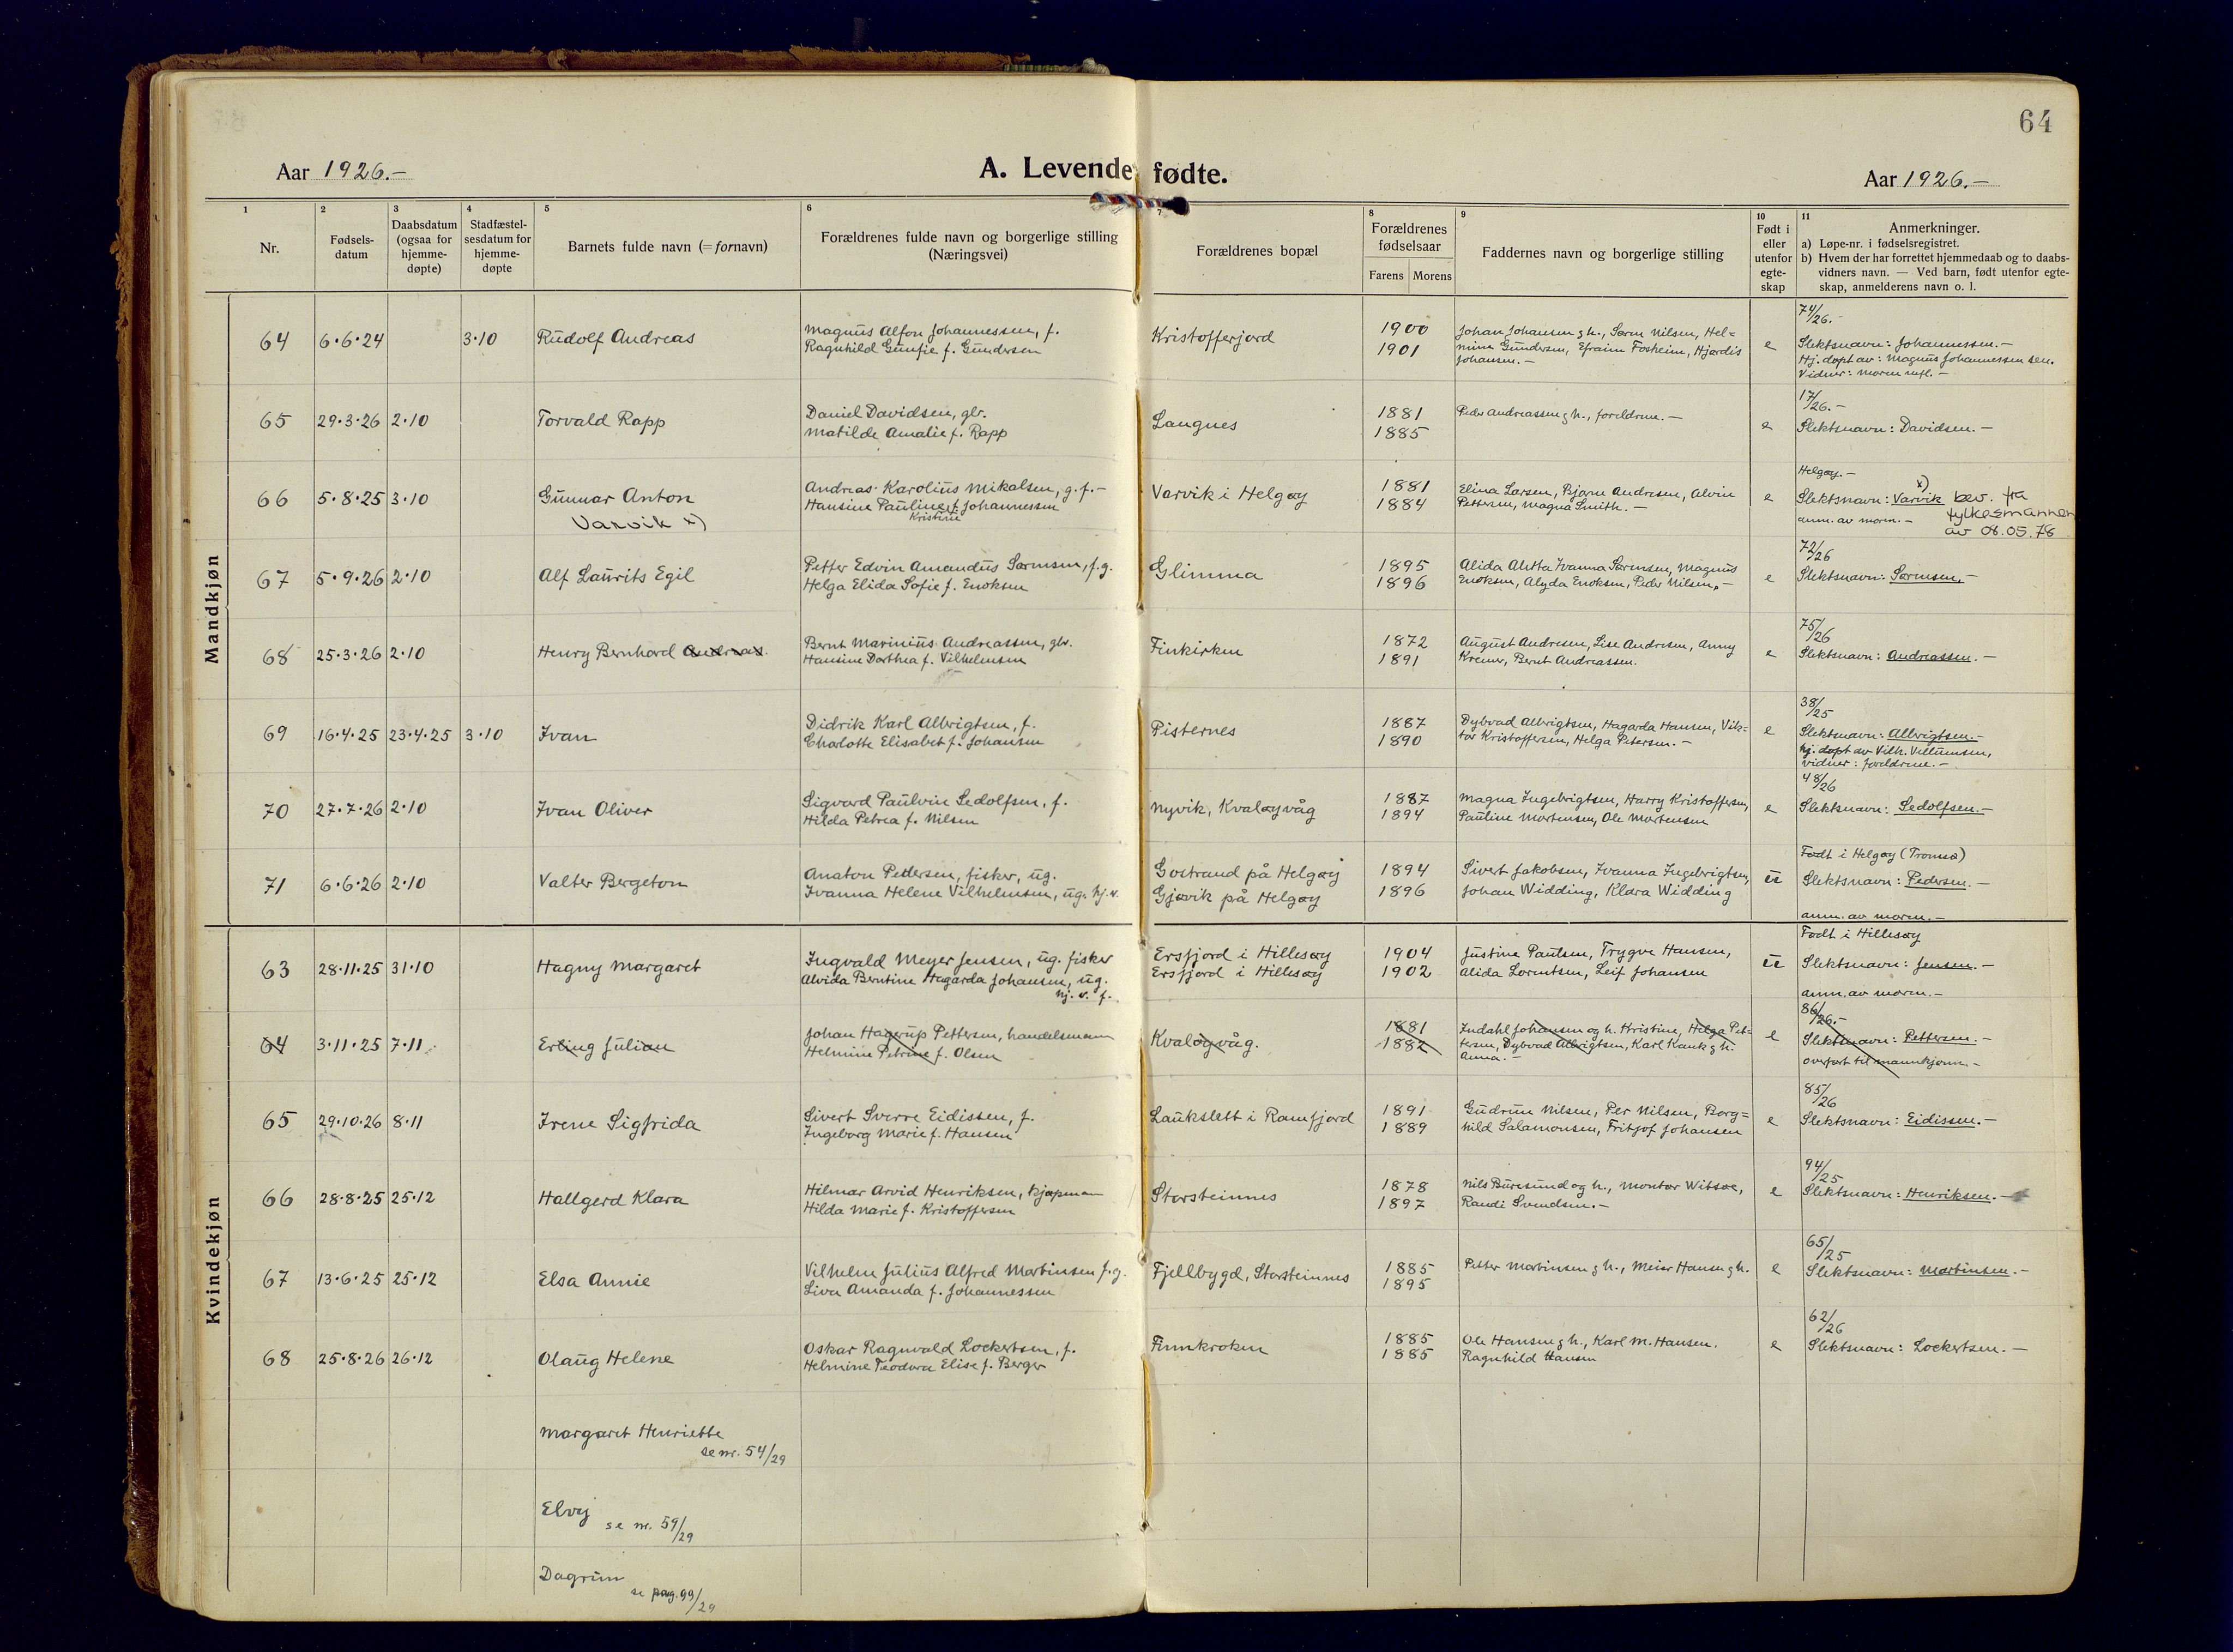 64
Aar 1926.-
A. Levende fødte.
Aar 1926.-
1
2
3
4
5
6
7
8
9
10
11
Nr.
Fødsels-
datum
Daabsdatum
(ogsaa for
hjemme-
døpte)
Stadfæstel-
sesdatum for
hjemme-
døpte
Barnets fulde navn (= fornavn)
Forældrenes fulde navn og borgerlige stilling
(Næringsvei)
Forældrenes bopæl
Forældrenes
fødselsaar
Farens Morens
Faddernes navn og borgerlige stilling
Født i
eller
utenfor
egte-
skap
Anmerkninger.
a) Løpe-nr. i fødselsregistret.
b) Hvem der har forrettet hjemmedaab og to daabs-
vidners navn. — Ved barn, født utenfor egte-
skap, anmelderens navn o. l.
Mandkjøn
64 6·6·24 3·10 Rudolf Andreas
Magnus Alfon Johannessen, f.
Ragnhild Gunfie f. Gundersen
Kristofferjord
1900
1901
Johan Johansen g h., Søren Nilsen, Hel=
mine Gundersen, Efraim Fosheim, Hjørdis
Johansen.-
e
74/26.-
Slektsnavn: Johannessen.-
Hj. døpt av: Magnus Johannessen sen.
Vidner: moren mfl.-
65 29·3·26 2·10 Torvald Rapp
Daniel Davidsen, gbr.
Matilde Amalie f. Rapp
Langnes
1881
1885
Peder Andreassen g h., foreldrene.-
e
17/26.-
Slektsnavn: Davidsen.-
66 5·8·25 3·10 Gunnar Anton
Varvik x)
Andreas Karolius Mikalsen, g.f.-
Hansine Pauline f. Johannessen
Kristine
Varvik i Helgøy
1881
1884
Elina Larsen, Bjarne Andresen, Alvin
Pettersen, Magna Smith.-
e
Helgøy.-
x)
Slektsnavn: Varvik bev. fra
fylkesmannen
anm. av moren.-
av 08.05.78
67 5·9·26 2·10 Alf Laurits Egil
Petter Edvin Amandus Sørensen, f.g.
Helga Elida Sofie f. Enoksen
Glimma
1895
1896
Alida Aletta Ivanna Sørensen, Magnus
Enoksen, Alyda Enoksen, Peder Nilsen.-
e
72/26
Slektsnavn: Sørensen.-
68 25·3·26 2·10 Henry Bernhard Andreas.
Bernt Marinius Andreassen, gbr.
Hansine Dorthea f. Vilhelmsen
Finkirken
1872
1891
August Andresen, Lise Andresen, Anny
Kremer, Bernt Andreassen.
e
75/26
Slektsnavn: Andreassen.-
69 16·4·25 23·4·25 3·10 Ivan
Didrik Karl Albrigtsen, f.
Charlotte Elisabet f. Johansen
Pisternes
1887
1890
Dybvad Albrigtsen, Hagarda Hansen, Vik=
tor Kristoffersen, Helga Petersen.-
e
38/25
Slektsnavn: Albrigtsen.-
hj. døpt av Vilh. Villumsen,
vidner: foreldrene.-
70 27·7·26 2·10 Ivan Oliver
Sigvard Paulvin Sedolfsen, f.
Hilda Petrea f. Nilsen
Nyvik, Kvaløyvåg
1887
1894
Magna Ingebrigtsen, Harry Kristoffersen,
Pauline Mortensen, Ole Mortensen
e
48/26
Slektsnavn: Sedolfsen.-
71 6·6·26 2·10 Valter Bergeton
Anaton Pedersen, fisker, ug.
Ivanna Helene Vilhelmsen, ug. hj.v.
Gostrand på Helgøy
Gjøvik på Helgøy
1894
1896
Sivert Jakobsen, Ivanna Ingebrigtsen,
Johan Widding, Klara Widding
u
Født i Helgøy (Tromsø)
Slektsnavn: Pedersen.-
anm. av moren.-
Kvindekjøn
63 28·11·25 31·10 Hagny Margaret
Ingvald Meyer Jensen, ug. fisker
Alvida Berntine Hagarda Johansen, ug.
hj. v. f.
Ersfjord i Hillesøy
Ersfjord i Hillesøy
1904
1902
Justine Paulsen, Trygve Hansen,
Alida Lorentsen, Leif Johansen
u
Født i Hillesøy
Slektsnavn: Jensen.-
anm. av moren.-
64 3·11·25 7·11 Erling Julian
Johan Hagerup Pettersen, handelsmann
Helmine Petrine f. Olsen
Kvaløyvåg.
1881
1882
Indahl Johansen og h. Kristine, Helga Pet=
tersen, Dybvad Albrigtsen, Karl Kauk g h.
Anna.-
e
86/26.-
Slektsnavn: Pettersen.-
overført til mannkjønn.-
65 29·10·26 8·11 Irene Sigfrida
Sivert Sverre Eidissen, f.
Ingeborg Marie f. Hansen
Laukslett i Ramfjord
1891
1889
Gudrun Nilsen, Per Nilsen, Borg=
hild Salamonsen, Fritjof Johansen
e
85/26
Slektsnavn: Eidissen.-
66 28·8·25 25·12 Hallgerd Klara
Hilmar Arvid Henriksen, kjøpmann
Hilda Marie f. Kristoffersen
Storsteinnes
1878
1897
Nils Buresund og h., montør Witsøe,
Randi Svendsen.-
e
94/25
Slektsnavn: Henriksen.-
67 13·6·25 25·12 Elsa Annie
Vilhelm Julius Alfred Martinsen f.g.
Liva Amanda f. Johannessen
Fjellbygd, Storsteinnes
1885
1895
Petter Martinsen g h., Meier Hansen g h.
e
65/25
Slektsnavn: Martinsen.-
68 25·8·26 26·12 Olaug Helene
Oskar Ragnvald Lockertsen, f.
Helmine Teodora Elise f. Berger
Finnkroken
1885
1885
Ole Hansen g h., Karl M. Hansen.
Ragnhild Hansen
e
62/26
Slektsnavn: Lockertsen.-
Margaret Henriette
se nr. 54/29
Elvy
se nr. 59/29
Dagrun
se pag. 99/29